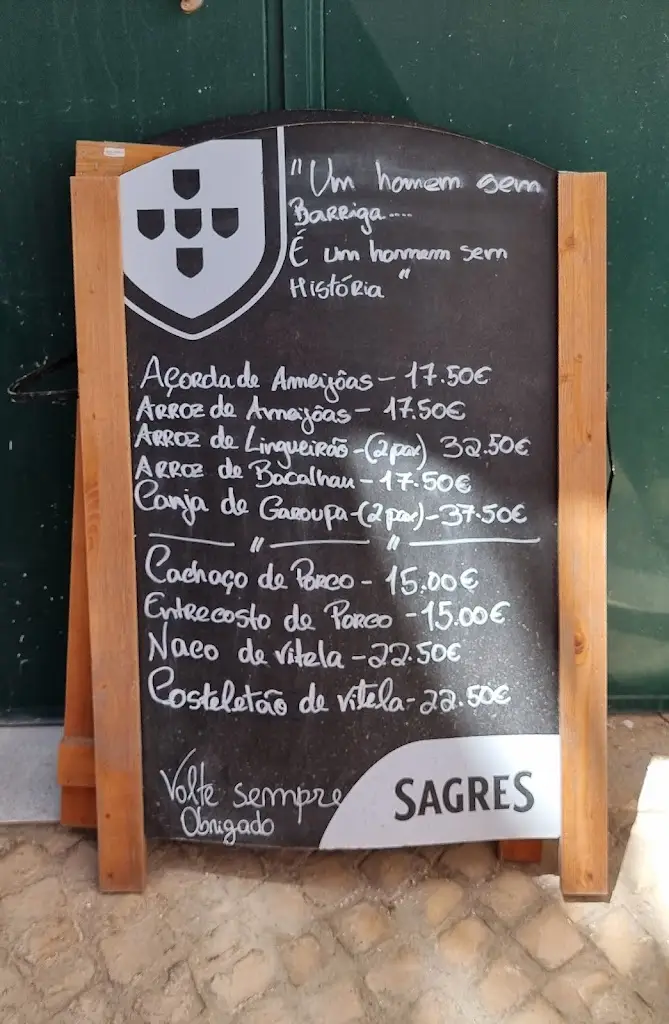 "Um homem sem
Barriga....
É um homem sem
História"
Açorda de Ameijôas - 17.50€
Arroz de Ameijôas - 17.50€
Arroz de Lingueirão - (2 pax) 32.50€
Arroz de Bacalhau - 17.50€
Canja de Garoupa - (2 pax) - 37.50€
" "
Cachaço de Porco - 15.00€
Entrecosto de Porco - 15.00€
Naco de vitela - 22.50€
Costeletão de vitela - 22.50€
Volte sempre
Obrigado
SAGRES